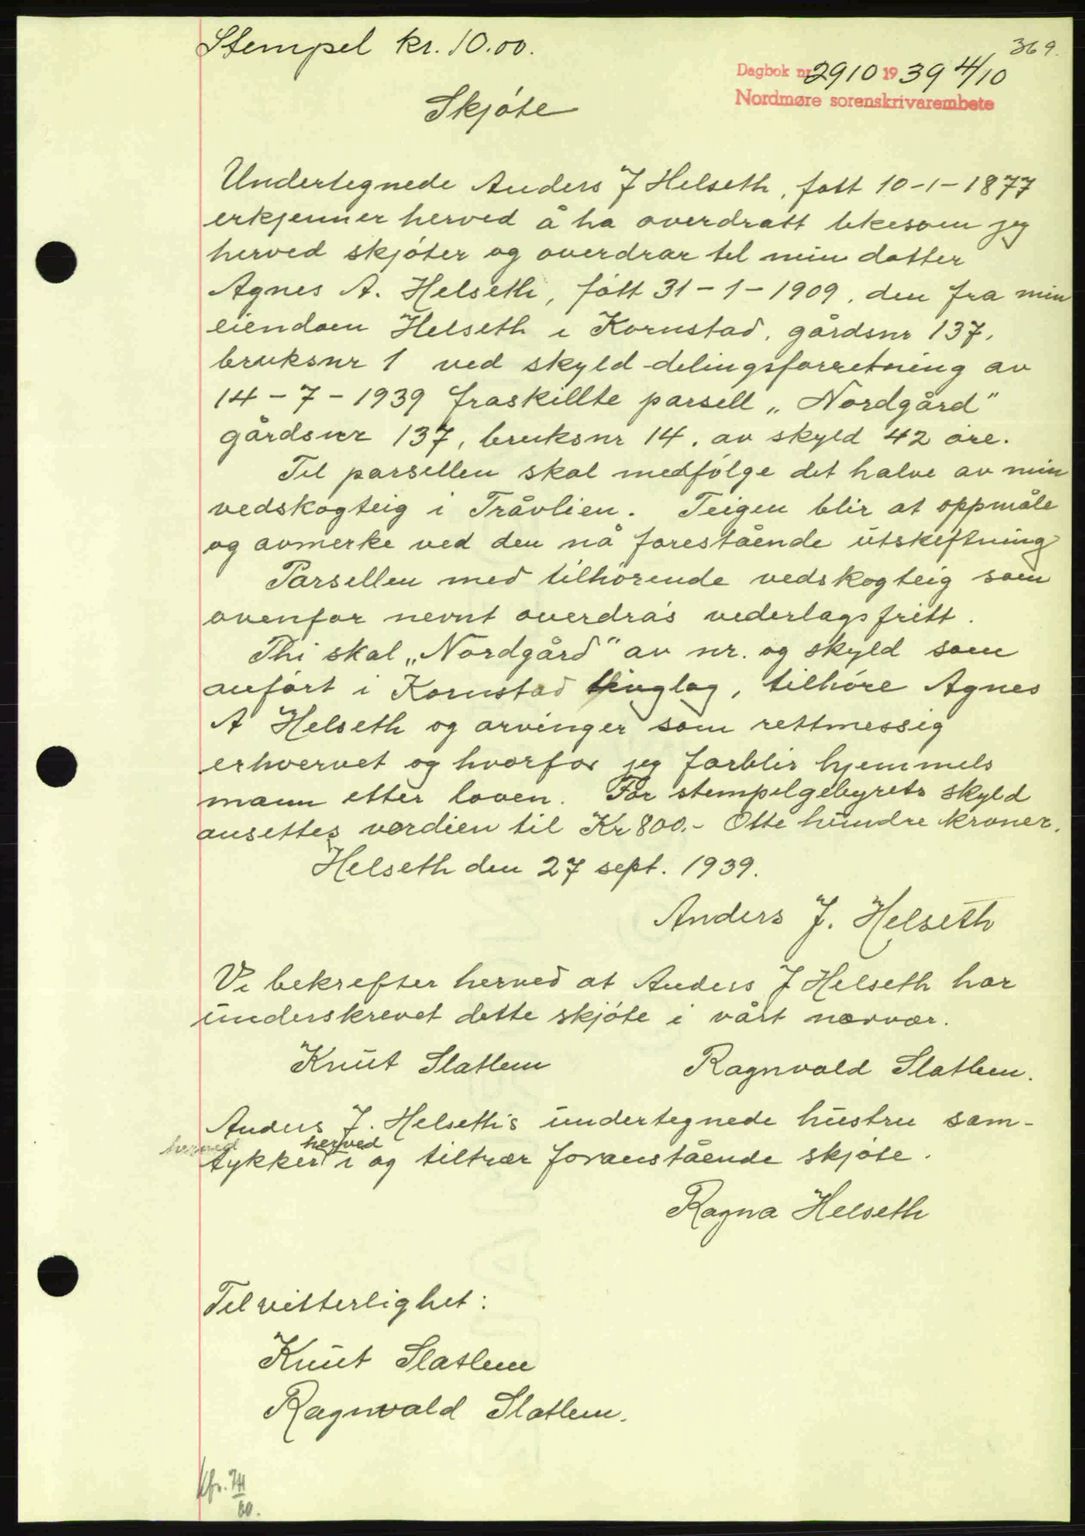 369.
Stempel kr. 10.00.
Dagbok nr 2910 1939 4/10
Nordmøre sorenskrivarembete
Skjóte
Undertegnede Anders J Helseth, fött 10-1-1877
erkjenner herved å ha overdratt likesom jeg
herved skjóter og overdrar til min datter
Agnes A. Helseth, fótt 31-1-1909, den fra min
eiendom Helseth i Kornstad, gårdsnr 137,
bruksnr 1 ved skyld-delingsforretning av
14-7-1939 fraskillte parsell „Nordgård"
gårdsnr 137, bruksnr 14, av skyld 42 öre.
Til parsellen skal medfólge det halve av min
vedskogteig i Tråvlien. Teigen blir at oppmåle
og avmerke ved den nå forestående utskiftning
Parsellen med tilhörende vedskogteig som
ovenfor nevnt overdras vederlagsfritt.
Thi skal „Nordgård" av nr. og skyld som
anfórt i Kornstad tinglag, tilhóre Agnes
A Helseth og arvinger som rettmessig
erhvervet og hvorfor jeg forblir hjemmels
mann etter loven. For stempelgebyrets skyld
ansettes verdien til Kr 800.- Otte hundre kroner.
Helseth den 27 sept. 1939.
Anders J. Helseth
Vi bekrefter herved at Anders J Helseth har
underskrevet dette skjóte i vårt nærvær.
Knut Slatlem Ragnvald Slatlem.
Anders J. Helseth's undertegnede hustru sam-
herved herved
tykker i og tiltrær foranstående skjóte.
Ragna Helseth
Til vitterlighet:
Knut Slatlem
Ragnvald Slatlem.
kfr. 741/60.